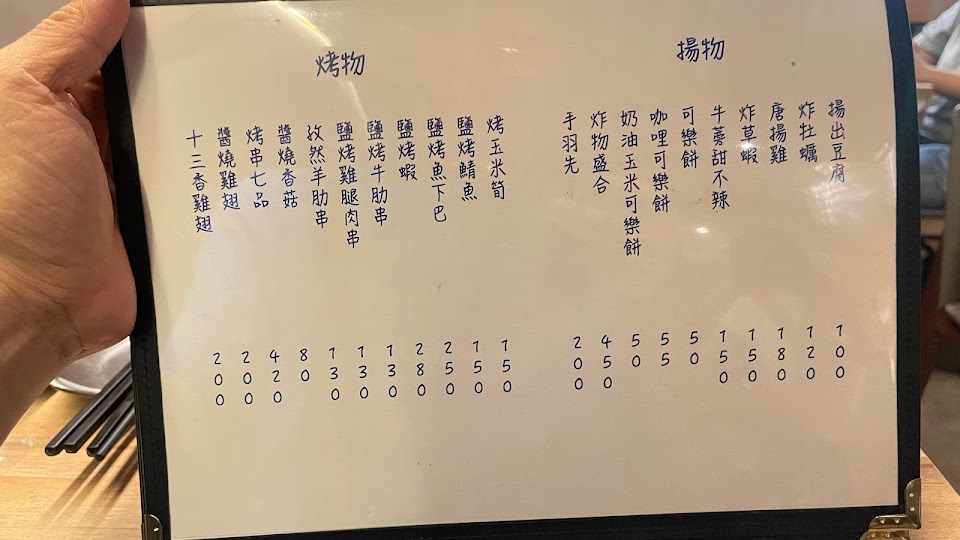 揚物
揚出豆腐 100
炸牡蠣 120
唐揚雞 180
炸草蝦 150
牛蒡甜不辣 150
可樂餅 50
咖哩可樂餅 55
奶油玉米可樂餅 50
炸物盛合 450
手羽先 200
烤物
烤玉米筍 150
鹽烤鯖魚 150
鹽烤魚下巴 250
鹽烤蝦 280
鹽烤牛肋串 130
鹽烤雞腿肉串 130
孜然羊肋串 130
醬燒香菇 80
烤串七品 420
醬燒雞翅 200
十三香雞翅 200